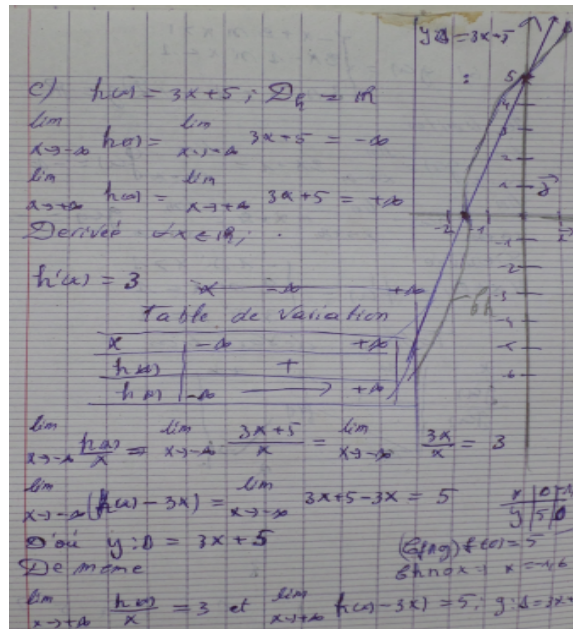 y:Δ = 3x+5
c) h(x) = 3x+5 ; Dh = ℝ
lim x→-∞ h(x) = lim x→-∞ 3x+5 = -∞
lim x→+∞ h(x) = lim x→+∞ 3x+5 = +∞
Derivée ∀x∈ℝ,
h'(x) = 3
x -∞ +∞
Table de variation
x -∞ +∞
h'(x) +
h(x) -∞ → +∞
lim x→-∞ h(x)/x = lim x→-∞ (3x+5)/x = lim x→-∞ 3x/x = 3
lim x→-∞ (h(x) - 3x) = lim x→-∞ 3x+5-3x = 5
D'où y:Δ = 3x+5
De meme
lim x→+∞ h(x)/x = 3 et lim x→+∞ h(x)-3x) = 5 ; y:Δ = 3x+
x 0
y 5 0
f(0) = 5
x = -1,6
5
4
3
2
1
-2 -1
-1
-2
-3
-4
-5
-6